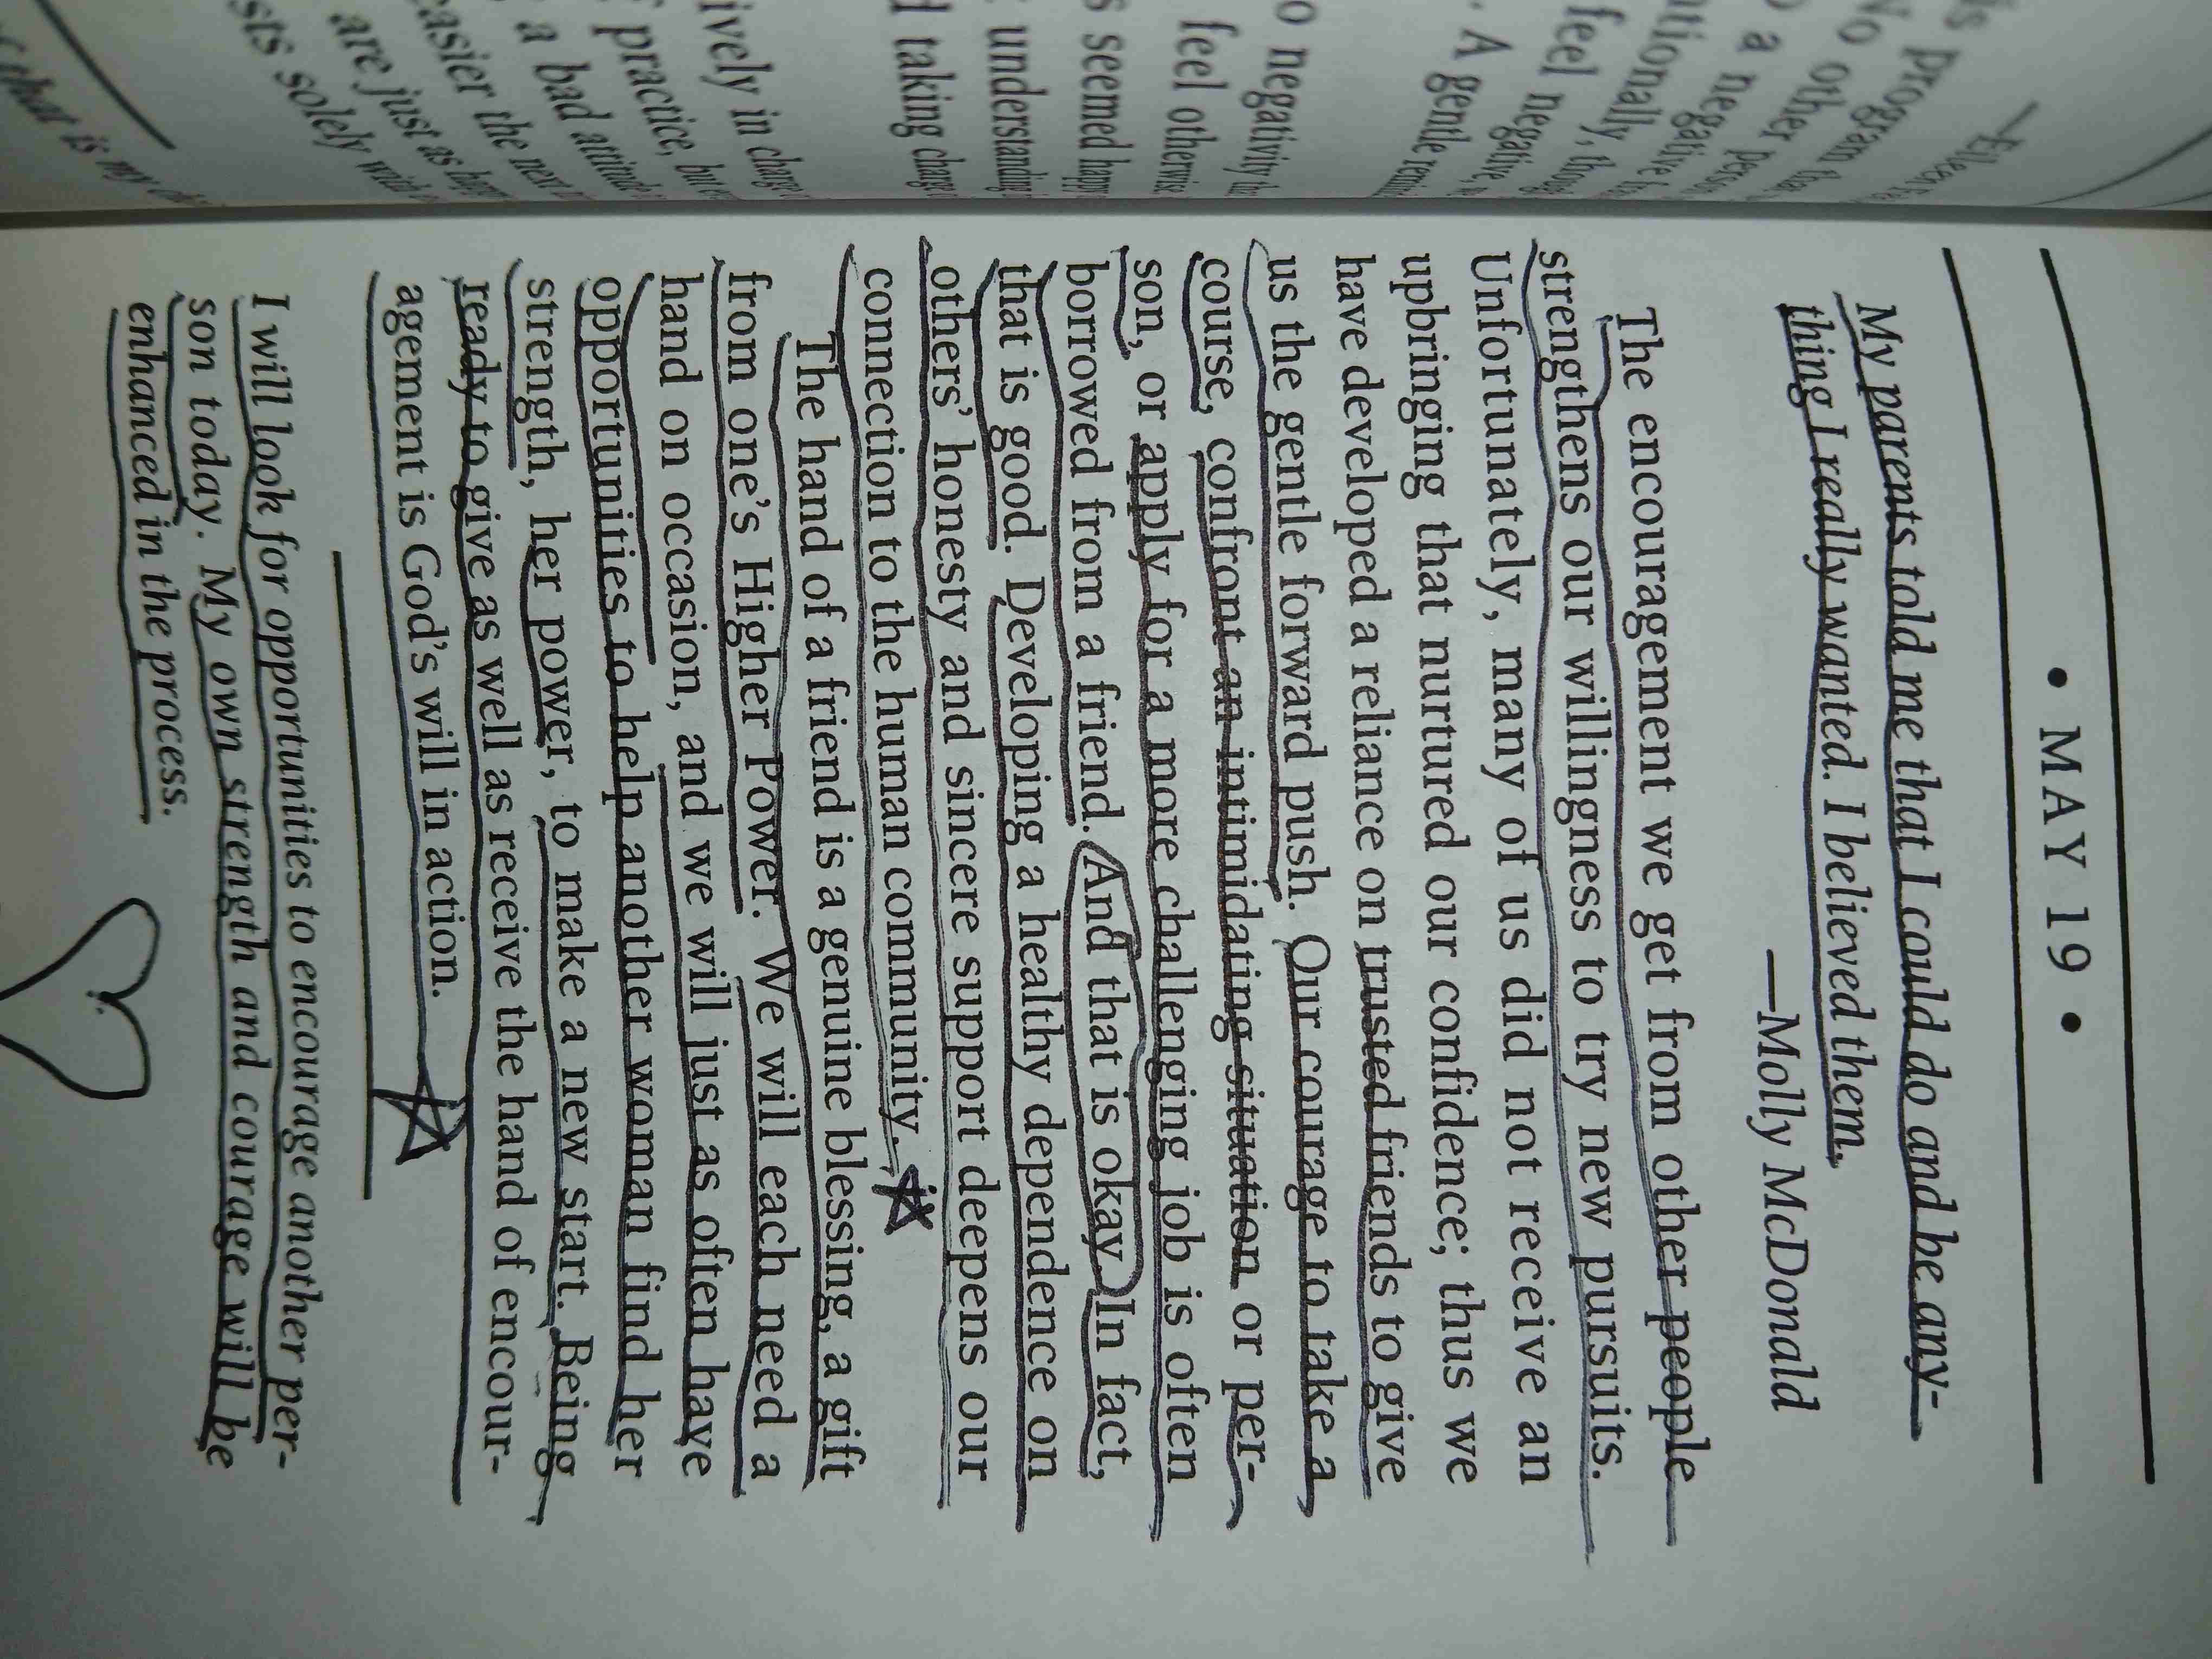 • MAY 19 •
My parents told me that I could do and be any-
thing I really wanted. I believed them.
—Molly McDonald
The encouragement we get from other people
strengthens our willingness to try new pursuits.
Unfortunately, many of us did not receive an
upbringing that nurtured our confidence; thus we
have developed a reliance on trusted friends to give
us the gentle forward push. Our courage to take a
course, confront an intimidating situation or per-
son, or apply for a more challenging job is often
borrowed from a friend. And that is okay. In fact,
that is good. Developing a healthy dependence on
others' honesty and sincere support deepens our
connection to the human community.
The hand of a friend is a genuine blessing, a gift
from one's Higher Power. We will each need a
hand on occasion, and we will just as often have
opportunities to help another woman find her
strength, her power, to make a new start. Being
ready to give as well as receive the hand of encour-
agement is God's will in action.
I will look for opportunities to encourage another per-
son today. My own strength and courage will be
enhanced in the process.
program
No other
a negative
feel negative
A gentle
o negativity
feel otherwise
seemed
understanding
taking
ively in
practice, but
a bad attitude
easier the next
are just as
solely with
that is my